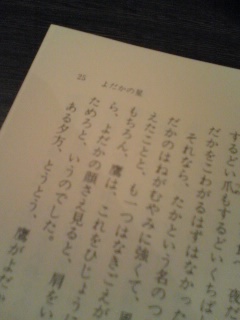 25 よだかの星
夜だ
するどい爪もするどいくちば
だかをこわがるはずはなかった
それなら、たかという名のつ
だかのはねがむやみに強くて、風
えたことと、も一つはなきごえが
もちろん、鷹は、これをひじょう
ら、よだかの顔さえ見ると、肩をい
ためろと、いうのでした。
ある夕方、とうとう、鷹がよだか